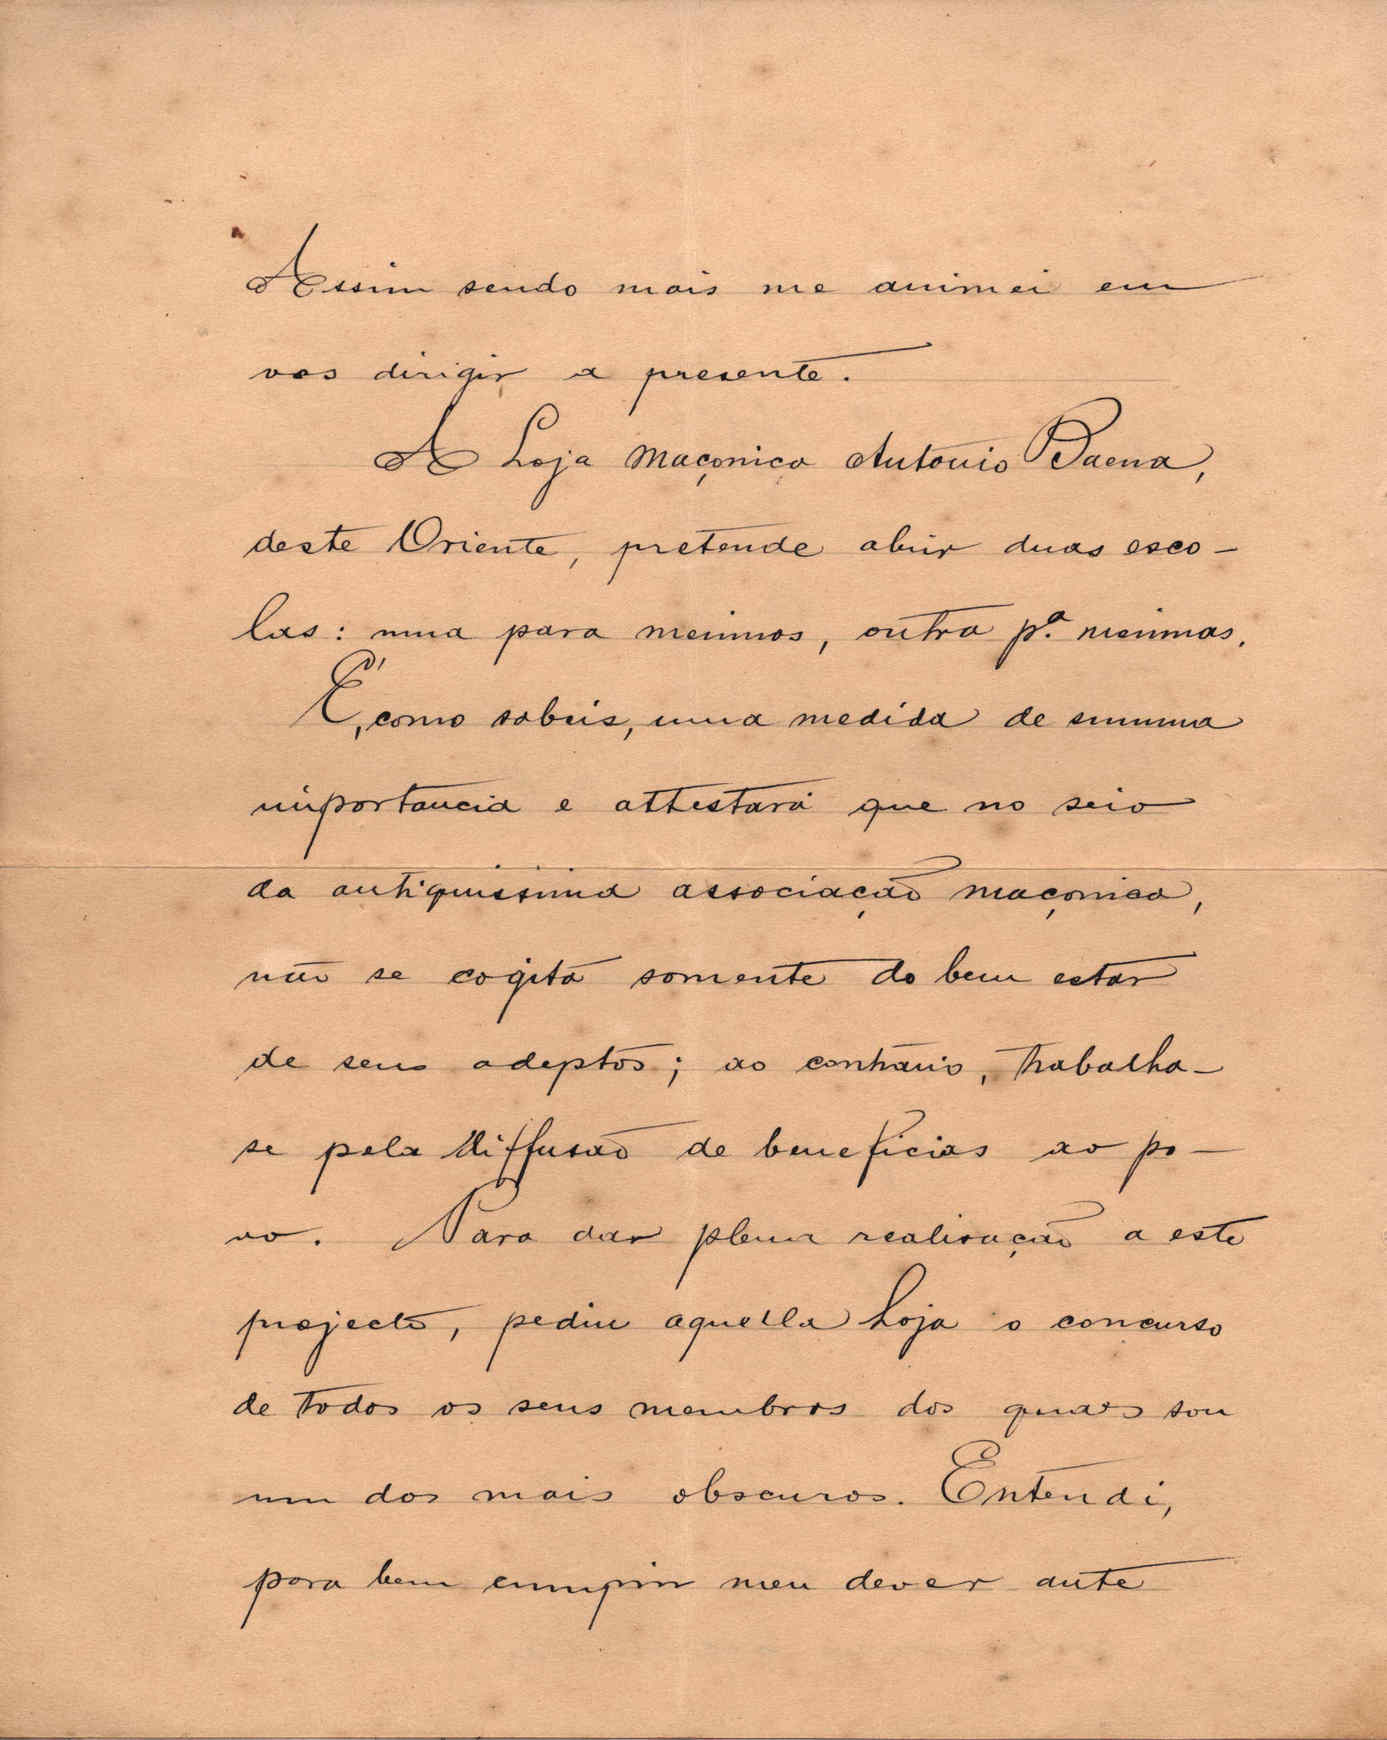 Assim sendo mais me animei em
vos dirigir a presente.
A Loja Maçonica Antonio Baena,
deste Oriente, pretende abrir duas esco-
las: uma para meninos, outra pª meninas.
É, como sabeis, uma medida de summa
importancia e attestará que no seio
da antiquissima associação maçonica,
não se cogita somente do bem estar
de seus adeptos; ao contrario, trabalha-
se pela diffusão de beneficios ao po-
vo. Para dar plena realisação a este
projecto, pediu aquella Loja o concurso
de todos os seus membros dos quaes sou
um dos mais obscuros. Entendi,
para bem cumprir meu dever ante